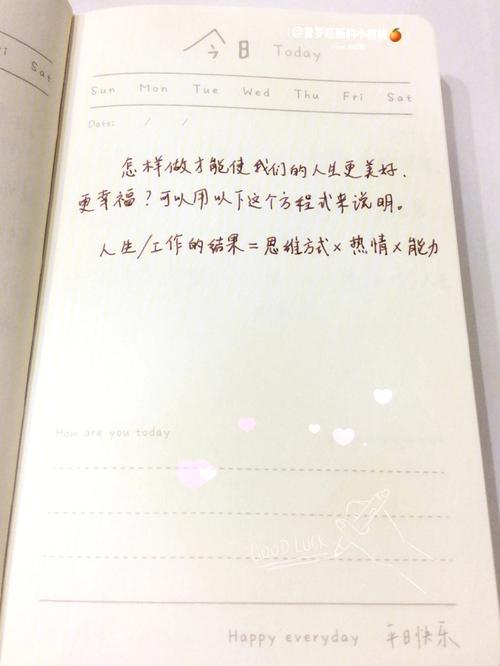 今日 Today
Sun Mon Tue Wed Thu Fri Sat
Sat
Date: / /
怎样做才能使我们的人生更美好、
更幸福？可以用以下这个方程式来说明。
人生/工作的结果=思维方式×热情×能力
How are you today
GOOD LUCK
Happy everyday 平日快乐